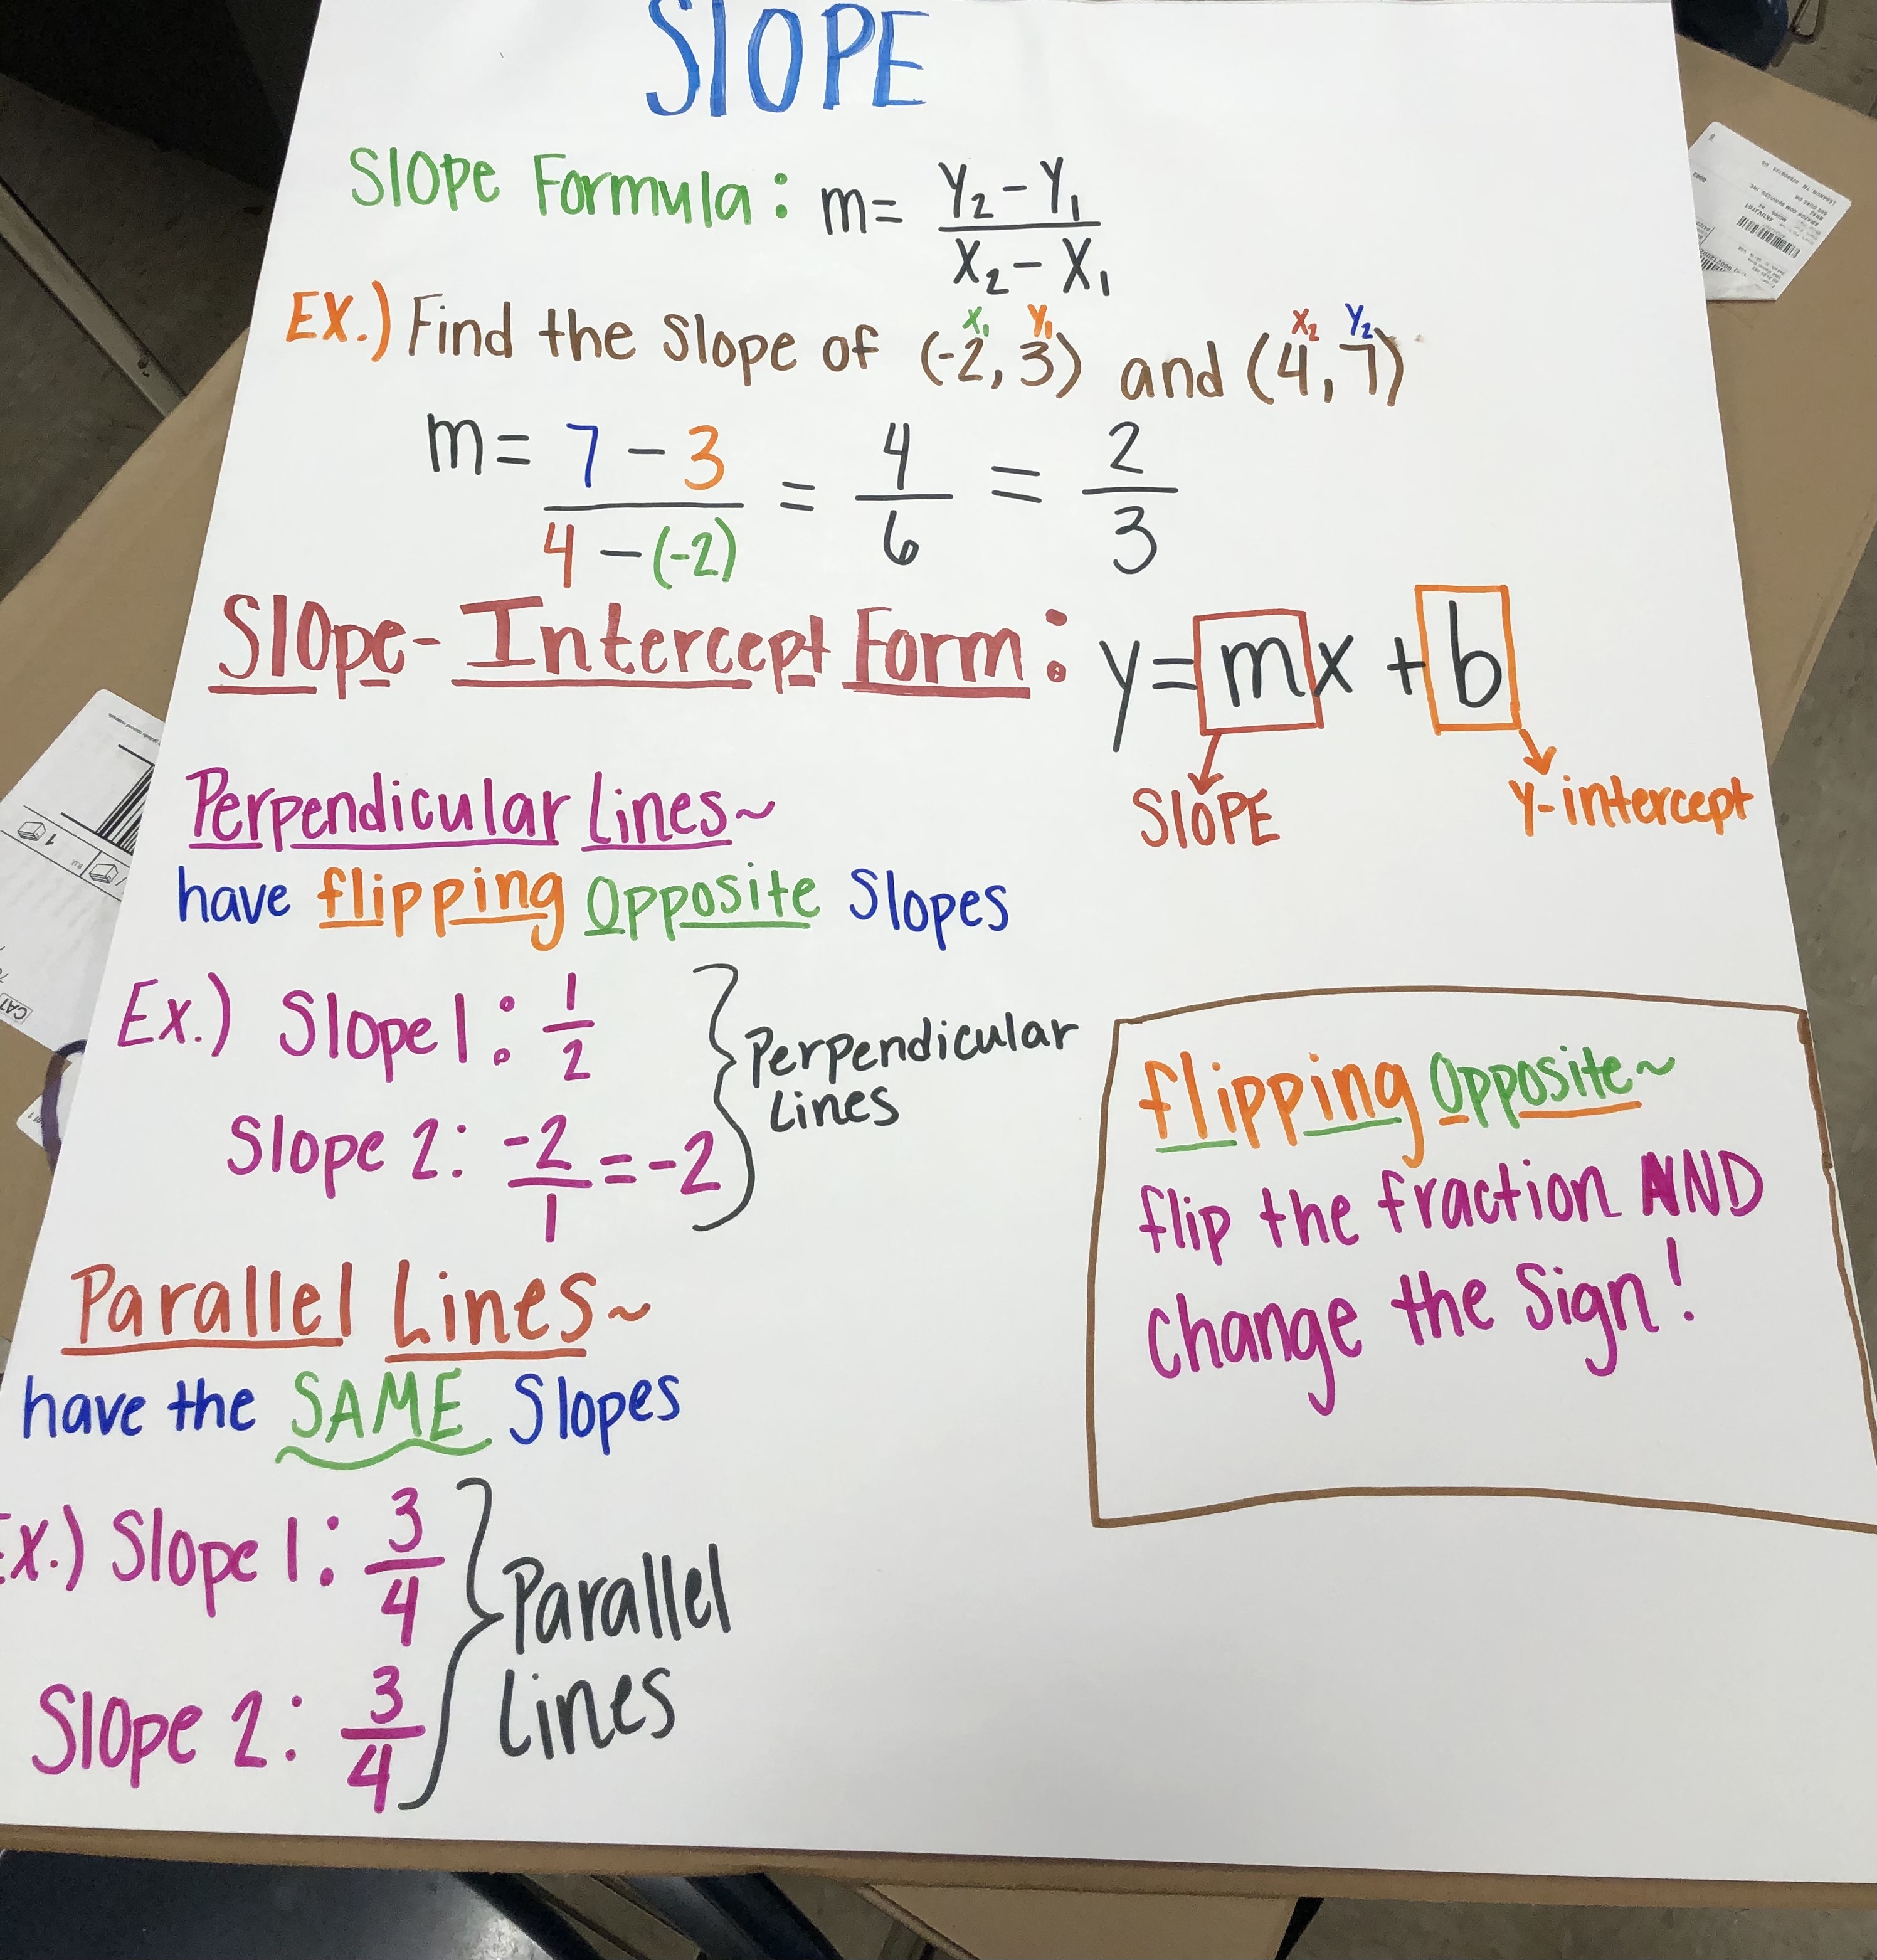 SLOPE
Slope Formula: m= Y₂-Y₁
X₂-X₁
X₁ Y₁ X₂ Y₂
EX.) Find the Slope of (-2,3) and (4,7)
m= 7-3 = 4 = 2
4-(-2) 6 3
Slope-Intercept Form: y=mx+b
SLOPE Y-intercept
Perpendicular Lines~
have flipping opposite Slopes
Ex.) Slope 1: 1/2
Slope 2: -2/1 = -2
Perpendicular
Lines
flipping opposite~
flip the fraction AND
change the Sign!
Parallel Lines~
have the SAME Slopes
Ex.) Slope 1: 3/4
Slope 2: 3/4
Parallel
Lines